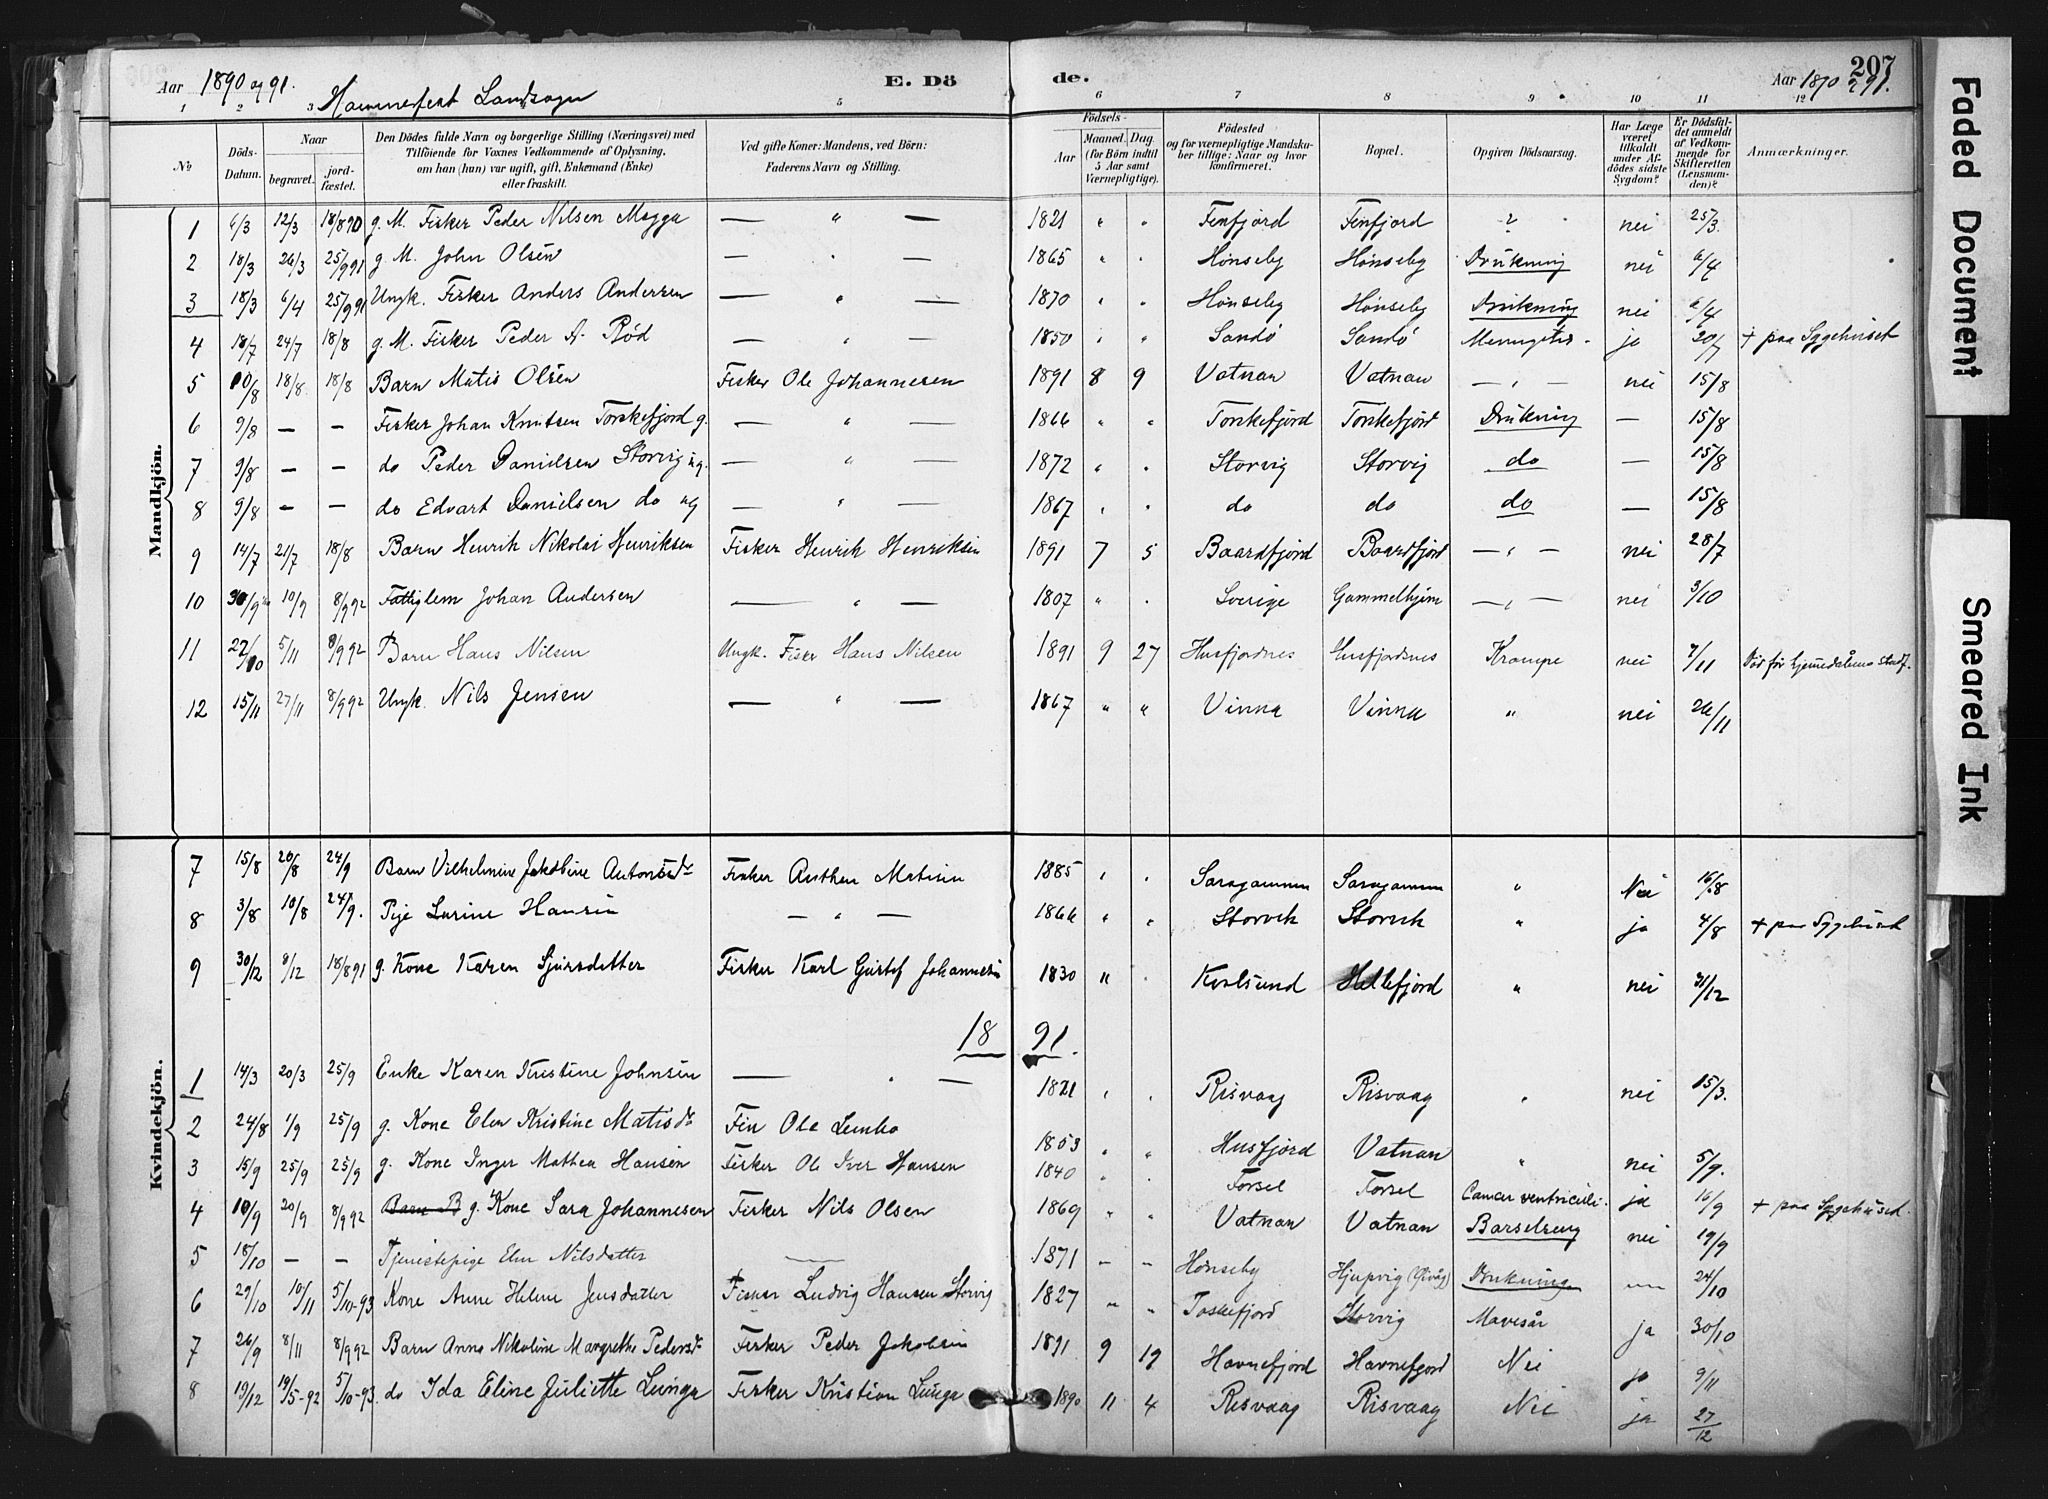 207
Aar 1890 og 91. Hammerfest Landsogn E. Döde. Aar 1890 & 91.
1 2 3 5 6 7 8 9 10 11 12
No
Döds-Datum.
Naar
begravet.
jordfæstet.
Den Dödes fulde Navn og borgerlige Stilling (Næringsvei) med
Tilföiende for Voxnes Vedkommende af Oplysning,
om han (hun) var ugift, gift, Enkemand (Enke)
eller fraskilt.
Ved gifte Koner: Mandens, ved Börn:
Faderens Navn og Stilling.
Födsels-
Aar
Maaned. Dag.
(for Börn indtil
5 Aar samt
Værnepligtige).
Födested
og for værnepligtige Mandskaber tillige: Naar og hvor
konfirmeret.
Bopæl.
Opgiven Dödsaarsag.
Har Læge
været
tilkaldt
under Afdödes sidste
Sygdom?
Er Dödsfaldet anmeldt
af Vedkommende for
Skifteretten
(Lensmanden)?
Anmærkninger.
Mandkjön.
1 6/3 12/3 18/8 90 g. M. Fisker Peder Nilsen Magga — " — 1821 " " Fenfjord Fenfjord ? nei 25/3.
2 18/3 26/3 25/9 91 g. M. John Olsen — " — 1865 " " Hønseby Hønseby Drukning nei 6/4
3 18/3 6/4 25/9 91 Ungk. Fisker Anders Andersen — " — 1870 " " Hønseby Hønseby Drukning nei 6/4
4 18/7 24/7 18/8 g. M. Fisker Peder A. Rød — " — 1850 " " Sandö Sandö ja 20/7 + paa Sygehuset
5 10/8 18/8 18/8 Barn Matis Olsen Fisker Ole Johannesen 1891 8 9 Vatnan Vatnan — " — nei 15/8
6 9/8 — — Fisker Johan Knutsen Torskefjord g. — " — 1866 " " Torskefjord Torskefjord Drukning — 15/8
7 9/8 — — do Peder Danielsen Storvig ug. — " — 1872 " " Storvig Storvig do — 15/8
8 9/8 — — do Edvart Danielsen do ug — " — 1867 " " do do do — 15/8
9 14/7 21/7 18/8 Barn Henrik Nikolai Henriksen Fisker Henrik Henriksen 1891 7 5 Baardfjord Baardfjord — " — nei 28/7
10 30/9 10/9 8/9 92 Fattiglem Johan Andersen — " — 1807 " " Sverige Gammelhjem — " — nei 3/10
11 22/10 5/11 8/9 92 Barn Hans Nilsen Ungk. Fisker Hans Nilsen 1891 9 27 Husfjordnes Husfjordnes Krampe nei 7/11 Död før hjemedåbens stadf.
12 15/11 27/11 8/9 92 Ungk. Nils Jensen — " — 1867 " " Vinna Vinna " nei 26/11
Kvindekjön.
7 15/8 20/8 24/9 Barn Vilhelmine Jakobine Antonsdr Fisker Anthon Matisen 1885 " " Saragammen Saragammen " Nei 16/8
8 3/8 10/8 24/9. Pige Lusine Hansen — " — 1866 " " Storvik Storvik " ja 4/8 + paa Sygehuset
9 30/12 8/12 18/8 91 g. Kone Karen Sjursdatter Fisker Karl Gustef Johannesen 1830 " " Kvalsund Hellefjord " nei 31/12
18 91.
1 14/3 20/3 25/9 Enke Karen Kristine Johnsen — " — 1821 " " Risvaag Risvaag " nei 15/3.
2 24/8 1/9 25/9 g. Kone Elen Kristine Matisdr Fin Ole Lemho 1853 " " Husfjord Vatnan " nei 5/9.
3 15/9 25/9 25/9 g. Kone Inger Mathea Hansen Fisker Ole Iver Hansen 1840 " " Forsel Forsel Cancer ventriculi. ja 16/9 + paa Sygehuset.
4 10/9 20/9 8/9 92 Barn B g. Kone Sara Johannesen Fisker Nils Olsen 1869 " " Vatnan Vatnan Barselseng nei 19/9
5 18/10 — — Tjenestepige Elen Nilsdatter — 1871 " " Hønseby Hjupvig Drukning — 24/10
6 29/10 10/11 5/10-93 Kone Anne Helene Jensdatter Fisker Ludvig Hansen Storvig 1827 " " Toskefjord Storvig Mavesår ja 30/10
7 26/9 8/11 8/9 92 Barn Anna Nikoline Margrethe Pedersdr Fisker Peder Jakobsen 1891 9 19 Havnefjord Havnefjord Nei ja 9/11
8 19/12 19/5-92 5/10-93. do Ida Eline Juliette Lunga Fisker Kristian Lunga 1890 11 4 Risvaag Risvaag Nei ja 27/12
Faded Document
Smeared Ink